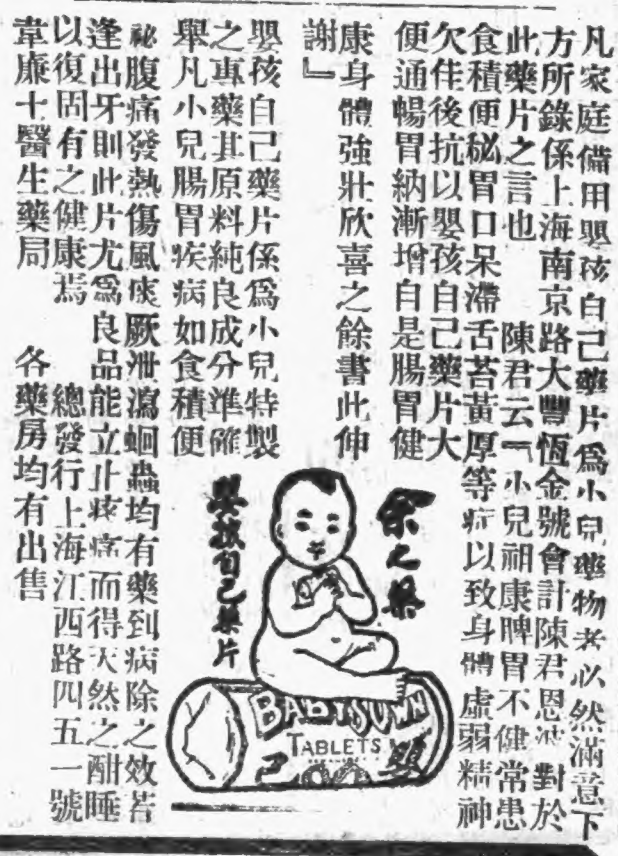 凡家庭備用嬰孩自己藥片爲小兒藥物者必然滿意下
方所錄係上海南京路大豐恆金號會計陳君恩波對於
此藥片之言也　陳君云『小兒祖康脾胃不健常患
食積便秘胃口呆滯舌苔黃厚等症以致身體虛弱精神
欠佳後抗以嬰孩自己藥片大
便通暢胃納漸增自是腸胃健
康身體強壯欣喜之餘書此伸
謝』
嬰孩自己藥片係爲小兒特製
之專藥其原料純良成分準確
舉凡小兒腸胃疾病如食積便
祕腹痛發熱傷風痰厥泄瀉蛔蟲均有藥到病除之效若
逢出牙則此片尤爲良品能立止痠痛而得天然之酣睡
以復固有之健康焉　總發行上海江西路四五一號
韋廉士醫生藥局　各藥房均有出售
余之藥
嬰孩自己藥片
BABY'S OWN
TABLETS
嬰
己